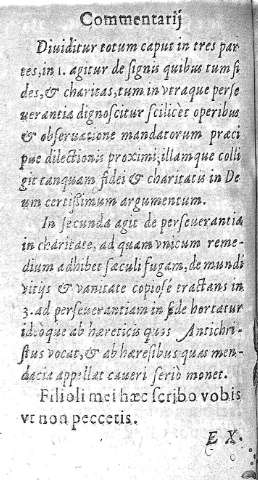 Commentarij
Diuiditur totum caput in tres par
tes, in 1. agitur de signis quibus tum fi
des, & charitas, tum in vtraque perse
uerantia dignoscitur scilicèt operibus
& obseruatione mandatorum præci
pue dilectionis proximi; illamque colli
git tanquam fidei & charitatis in De
um certissimum argumentum.
In secunda agit de perseuerantia
in charitate, ad quam vnicum reme-
dium adhibet sæculi fugam, de mundi
vitijs & vanitate copiosè tractans in
3. ad perseuerantiam in fide hortatur
idcòque ab hæreticis quos Antichri-
stus vocat, & ab hæresibus quas men-
dacia appellat caueri seriò monet.
Filioli mei hæc scribo vobis
vt non peccetis.
EX.